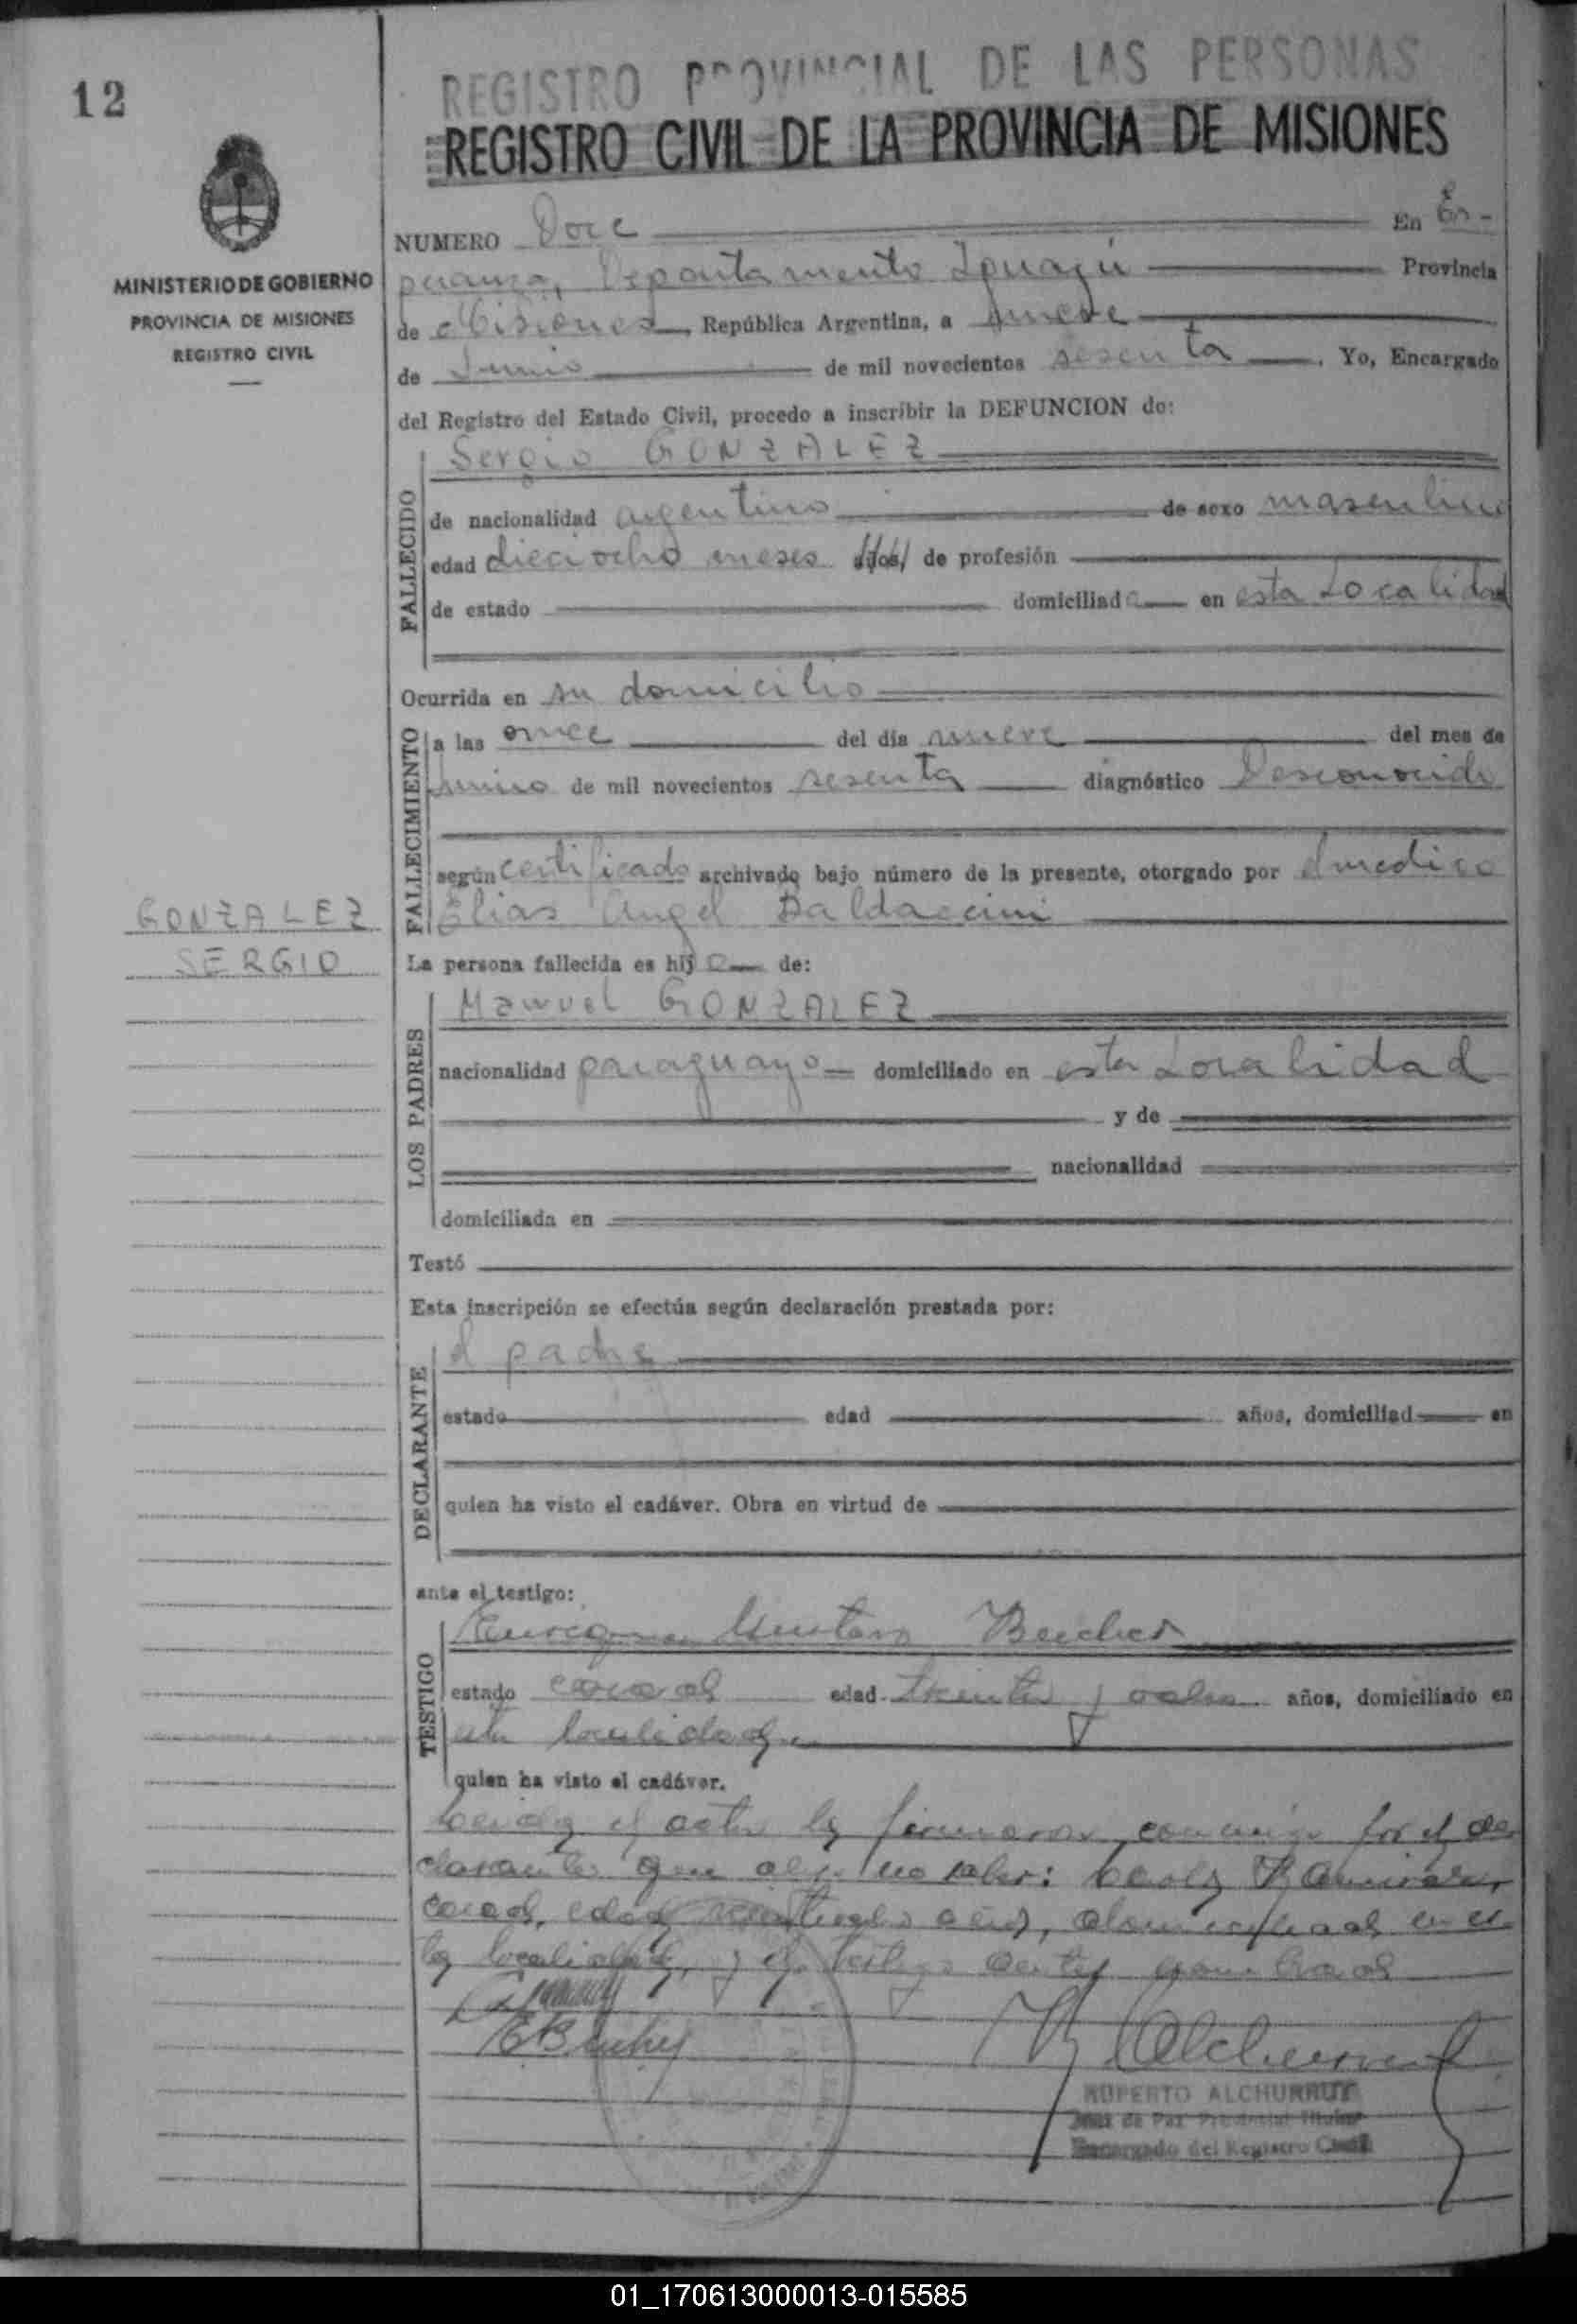 12
REGISTRO PROVINCIAL DE LAS PERSONAS
REGISTRO CIVIL DE LA PROVINCIA DE MISIONES
MINISTERIO DE GOBIERNO
PROVINCIA DE MISIONES
REGISTRO CIVIL
NUMERO Doce En Es-
peranza, Departamento Iguazú Provincia
de Misiones, República Argentina, a nueve
de Junio de mil novecientos sesenta. Yo, Encargado
del Registro del Estado Civil, procedo a inscribir la DEFUNCION de:
FALLECIDO
Sergio GONZALEZ
de nacionalidad argentino de sexo masculino
edad dieciocho meses años de profesión
de estado domiciliado en esta Localidad
Ocurrida en su domicilio
FALLECIMIENTO
a las once del día nueve del mes de
Junio de mil novecientos sesenta diagnóstico Desconocido
según certificado archivado bajo número de la presente, otorgado por el medico
Elias Angel Baldaccini
GONZALEZ
SERGIO
La persona fallecida es hijo de:
LOS PADRES
Manuel GONZALEZ
nacionalidad paraguayo domiciliado en esta Localidad
y de
nacionalidad
domiciliada en
Testó
Esta inscripción se efectúa según declaración prestada por:
DECLARANTE
el padre
estado edad años, domiciliad en
quien ha visto el cadáver. Obra en virtud de
ante el testigo:
TESTIGO
Gustavo
estado casado edad treinta y ocho años, domiciliado en
esta localidad
quien ha visto el cadáver.
Leida el acta la firmaron conmigo por el de
clarante que dijo no saber: Ramirez,
casado, edad años, domiciliado en es
ta localidad, y el testigo antes nombrado
RUPERTO ALCHURRUT
Juez de Paz Provincial Titular
Encargado del Registro Civil
01_170613000013-015585